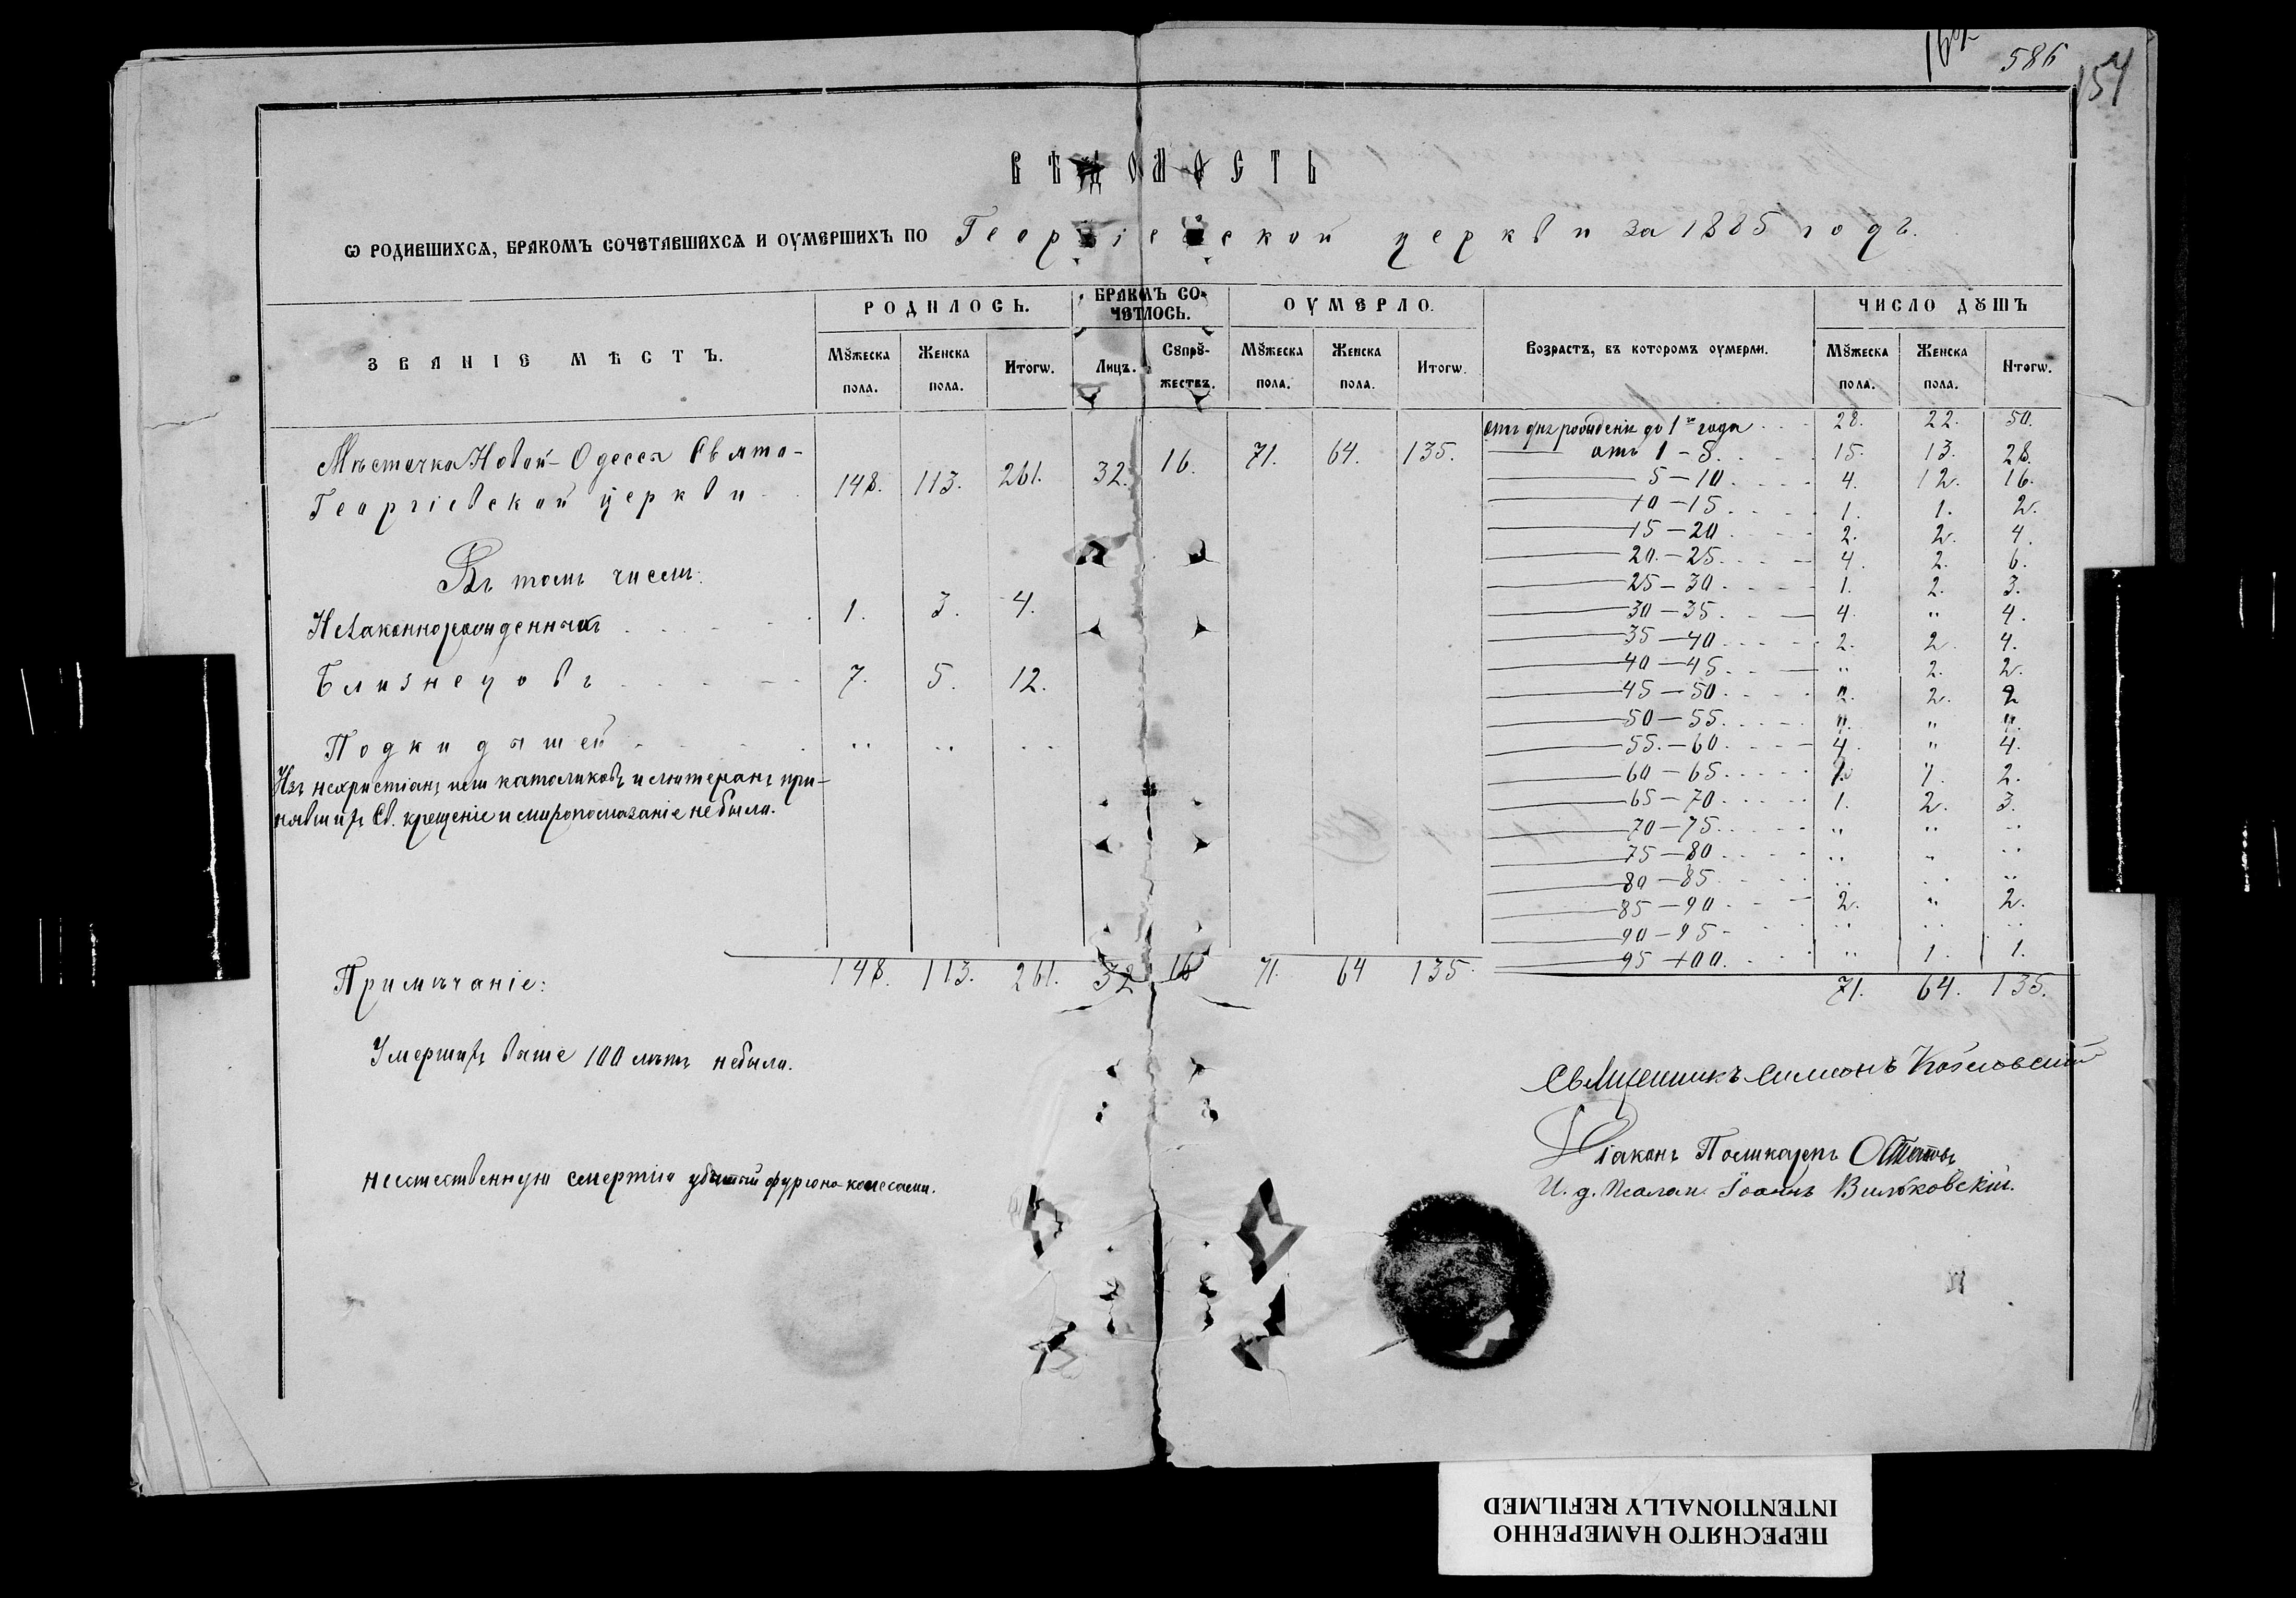 586
154
ВѢДОМОСТЬ
Ѡ РОДИВШИХСѦ, БРАКОМЪ СОЧЕТАВШИХСѦ И ОУМЕРШИХЪ ПО Георгіевской церкви за 1885 годъ.
ЗВАНІЕ МѢСТЪ.
РОДИЛОСЬ.
БРАКОМЪ СО-
ЧЕТЛОСЬ.
ОУМЕРЛО.
Возрастъ, въ которомъ оумерли.
ЧИСЛО ДꙊШЪ
Мꙋжеска пола.
Женска пола.
Итогѡ.
Лицъ.
Сꙋпрꙋ-
жествъ.
Мꙋжеска пола.
Женска пола.
Итогѡ.
Мꙋжеска пола.
Женска пола.
Итогѡ.
Мѣстечка Новой-Одесса Свято-
Георгіевской церкви 148. 113. 261. 32. 16. 71. 64. 135.
Въ томъ числѣ:
Незаконнорожденныхъ 1. 3. 4.
Близнецовъ 7. 5. 12.
Подкидышей " " "
Изъ нехристіанъ или католиковъ и лютеранъ при-
нявшихъ Св. крещеніе и миропомазаніе небыло.
148. 113. 261. 32 16 71. 64 135.
отъ дня рожденія до 1го года 28. 22. 50.
отъ 1-5. 15. 13. 28.
5-10 4. 12. 16.
10-15 1. 1. 2.
15-20 2. 2. 4.
20-25 4. 2. 6.
25-30 1. 2. 3.
30-35 4. " 4.
35-40 2. 2. 4.
40-45 " 2. 2.
45-50 " 2. 2
50-55 " " "
55-60 4. " 4.
60-65 1. 1. 2.
65-70 1. 2. 3.
70-75 " " "
75-80 " " "
80-85 " " "
85-90 2. " 2.
90-95 " " "
95-100 " 1. 1.
71. 64. 135.
Примѣчаніе:
Умершихъ выше 100 лѣтъ небыло.
неестественную смертію убитый фургона колесами.
Священникъ Симеонъ Козловскій
Діаконъ Поликарпъ
И. д. Псалом. Іоаннъ Вильковскій.
ПЕРЕСНЯТО НАМЕРЕННО
INTENTIONALLY REFILMED